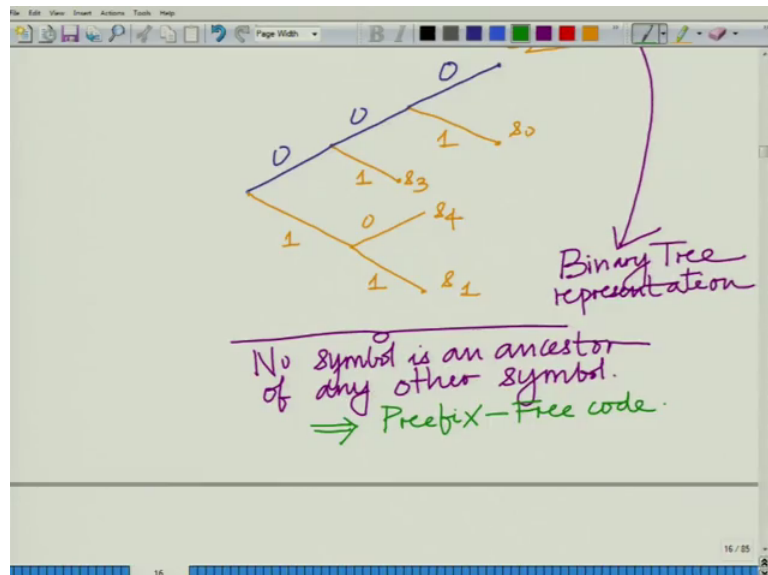 File Edit View Insert Actions Tools Help
Page Width
B I
0
0
1 s0
0
1 s3
0 s4
1
1 s1
Binary Tree
representation
No symbol is an ancestor
of any other symbol.
⇒ Preefix-Free code.
16 / 85
16